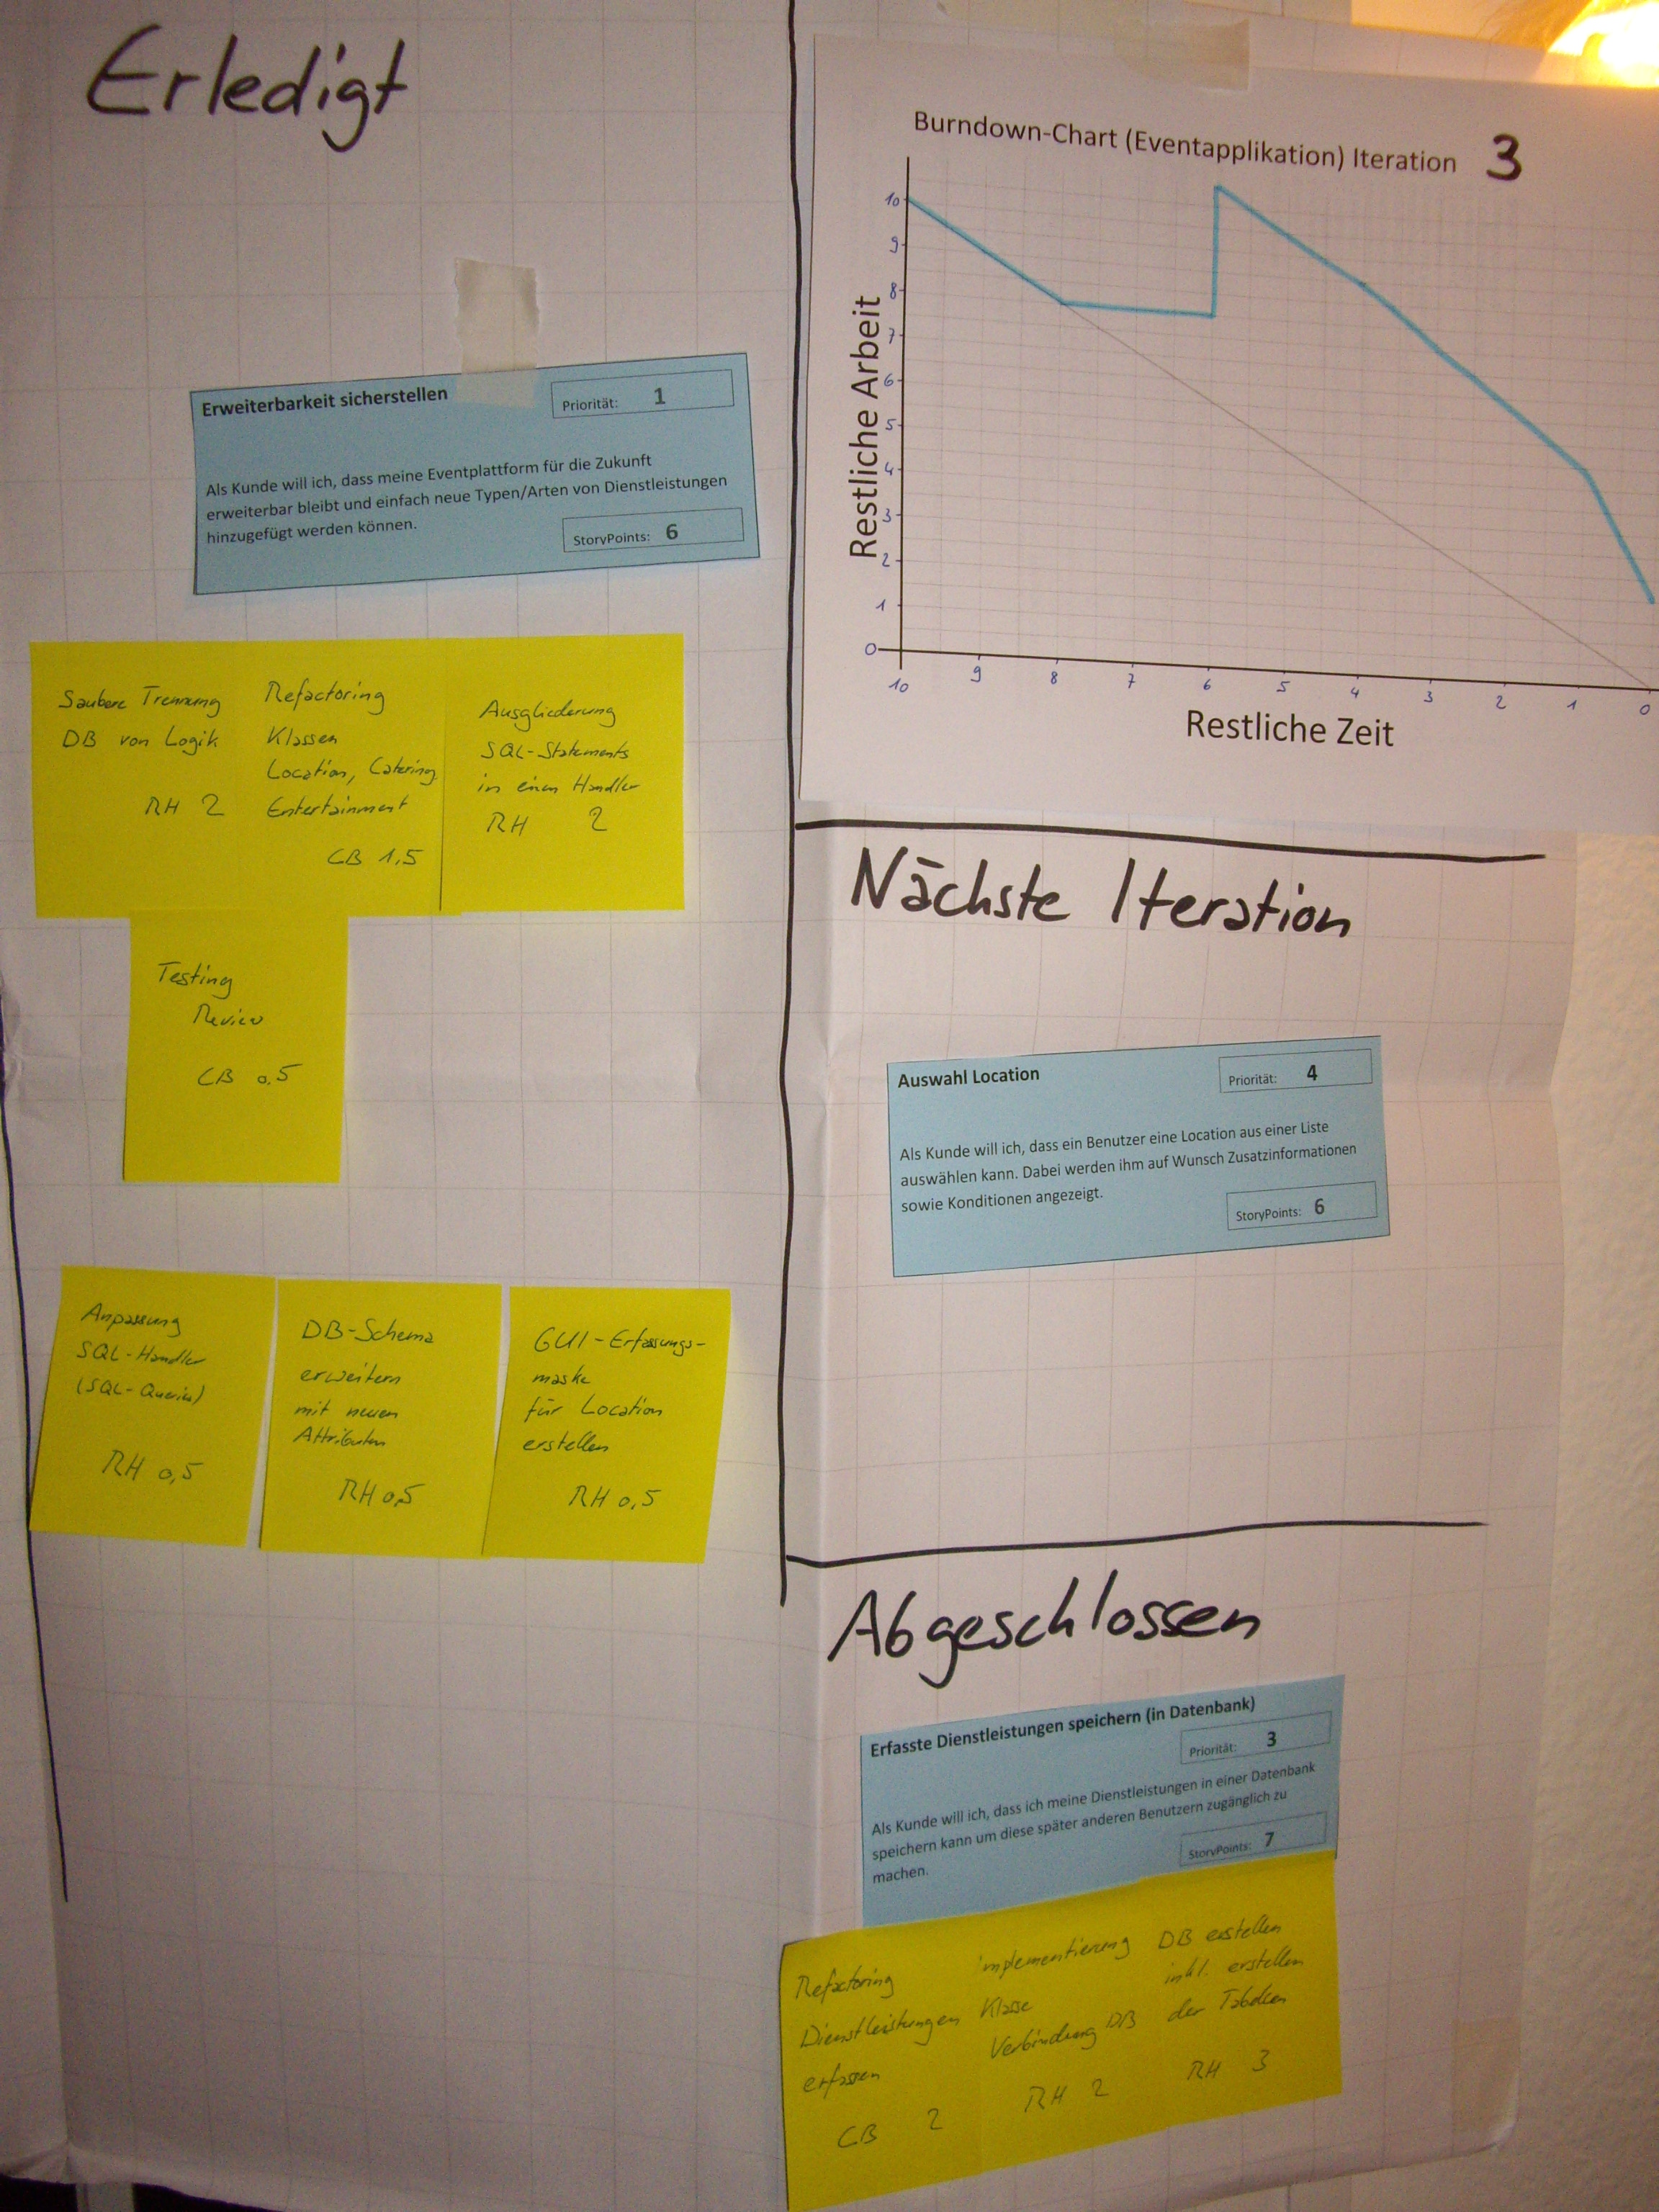 Erledigt
Erweiterbarkeit sicherstellen
Priorität: 1
Als Kunde will ich, dass meine Eventplattform für die Zukunft
erweiterbar bleibt und einfach neue Typen/Arten von Dienstleistungen
hinzugefügt werden können.
StoryPoints: 6
Saubere Trennung
DB von Logik
RH 2
Refactoring
Klassen
Location, Catering
Entertainment
CB 1,5
Ausgliederung
SQL-Statements
in einen Handler
RH 2
Testing
Review
CB 0,5
Anpassung
SQL-Handler
(SQL-Queries)
RH 0,5
DB-Schema
erweitern
mit neuen
Attributen
RH 0,5
GUI-Erfassungs-
maske
für Location
erstellen
RH 0,5
Burndown-Chart (Eventapplikation) Iteration 3
Restliche Arbeit
10
9
8
7
6
5
4
3
2
1
0
10 9 8 7 6 5 4 3 2 1 0
Restliche Zeit
Nächste Iteration
Auswahl Location
Priorität: 4
Als Kunde will ich, dass ein Benutzer eine Location aus einer Liste
auswählen kann. Dabei werden ihm auf Wunsch Zusatzinformationen
sowie Konditionen angezeigt.
StoryPoints: 6
Abgeschlossen
Erfasste Dienstleistungen speichern (in Datenbank)
Priorität: 3
Als Kunde will ich, dass ich meine Dienstleistungen in einer Datenbank
speichern kann um diese später anderen Benutzern zugänglich zu
machen.
StoryPoints: 7
Refactoring
Dienstleistungen
erfassen
CB 2
implementierung
Klasse
Verbindung DB
RH 2
DB erstellen
inkl. erstellen
der Tabellen
RH 3